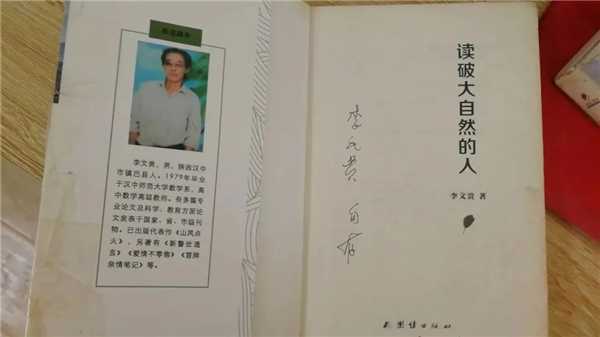 作者简介
李文贵，男，陕西汉中
市镇巴县人。1979年毕业
于汉中师范大学数学系，高
中数学高级教师。有多篇专
业论文及科学、教育方面论
文发表于国家、省、市级刊
物。已出版代表作《山风点
火》，另著有《新警世通
言》《爱情不零售》《冒牌
亲情笔记》等。
李文贵
自存
读破大自然的人
李文贵 著
团结出版社